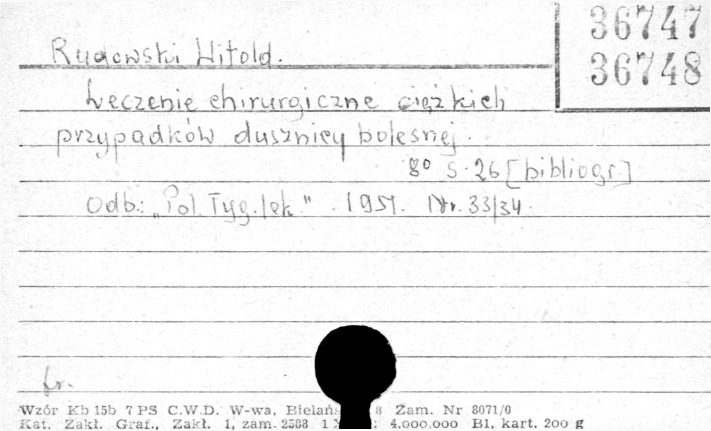 36747
36748
Rudowski Witold.
Leczenie chirurgiczne ciężkich
przypadków dusznicy bolesnej.
8° S. 26 [bibliogr.]
Odb.: „Pol. Tyg. lek." 1951. Nr. 33/34.
fr.
Wzór Kb 15b 7 PS C.W.D. W-wa, Bielańs 8 Zam. Nr 8071/0
Kat. Zakł. Graf., Zakł. 1, zam. 2588 1 4.000.000 B1, kart. 200 g